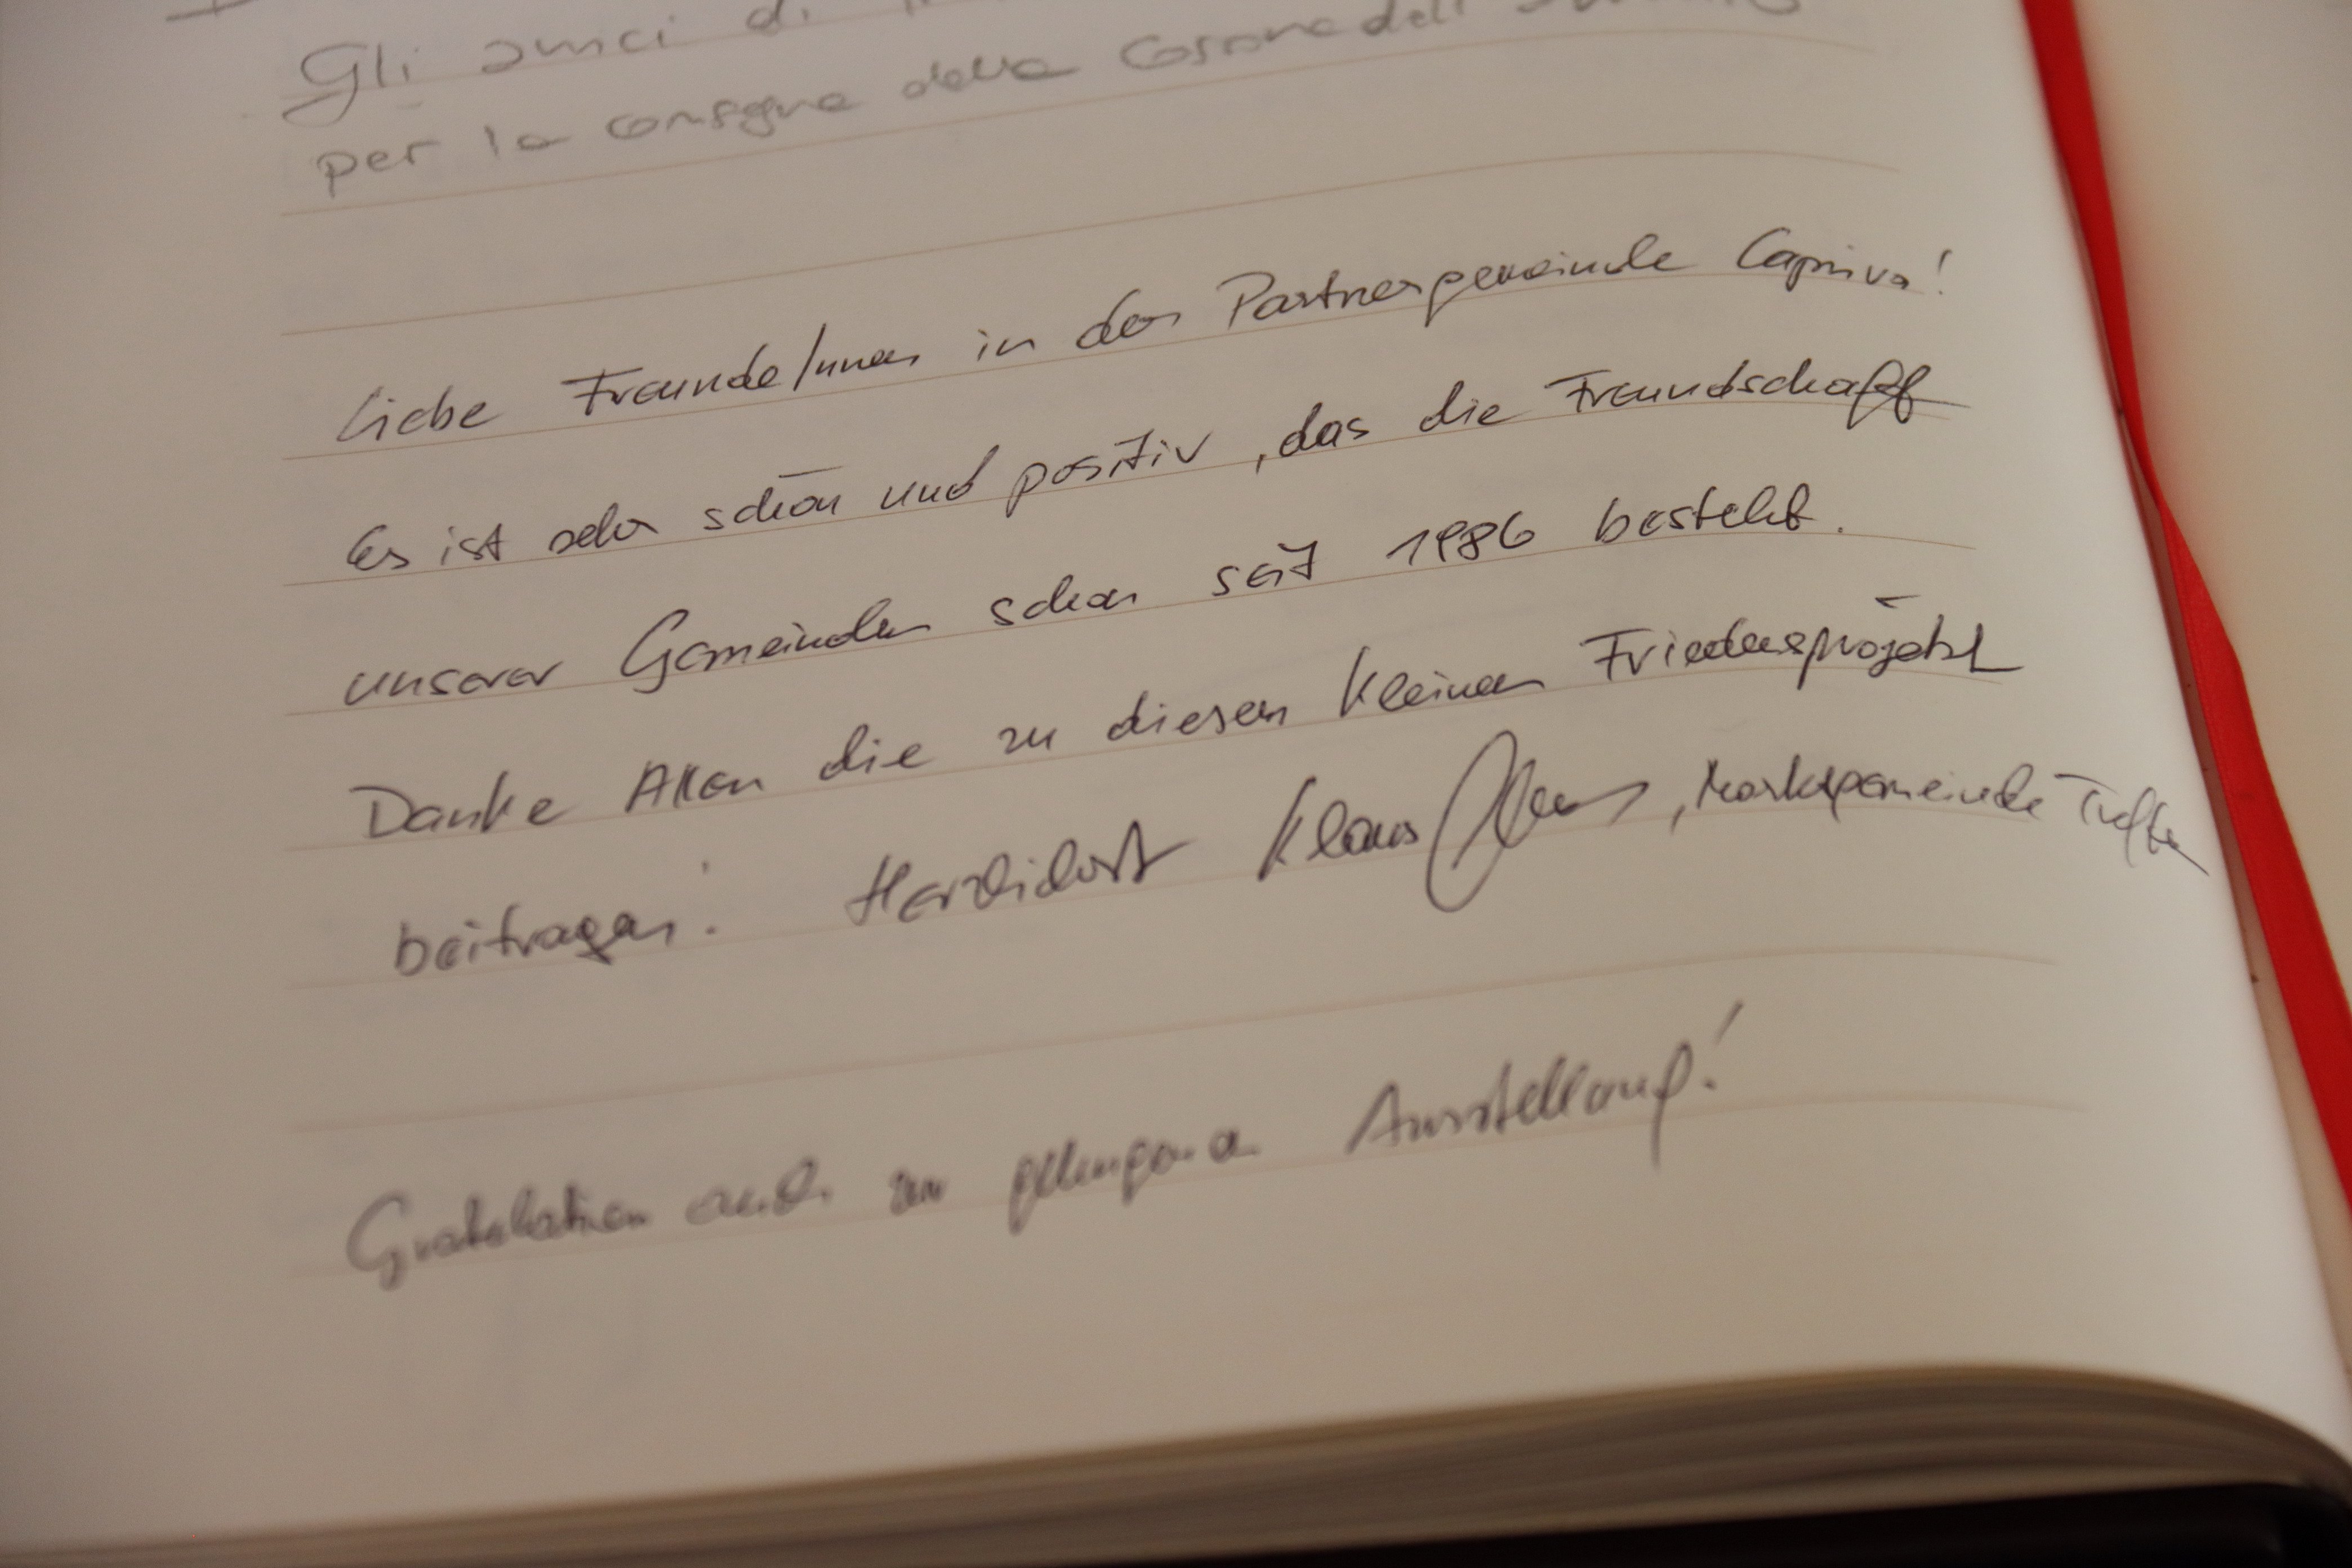 Gli amici di
per la consegna della Corona dell'
Liebe Freunde/Innen in der Partnergemeinde Capriva!
Es ist sehr schön und positiv, das die Freundschaft
unserer Gemeinden schon seit 1986 besteht.
Danke Allen die zu diesem kleinen Friedensprojekt
beitragen! Herzlichst Klaus , Marktgemeinde Treffen
Gratulation auch zur gelungenen Ausstellung!